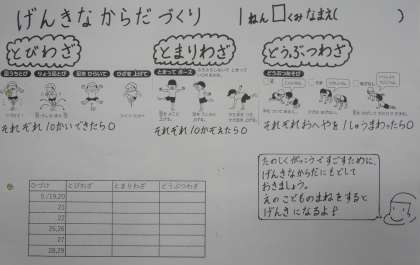 げんきなからだづくり 1ねん□くみ なまえ( )
とびわざ とまりわざ どうぶつわざ
前うちとび りょう足とび 足を ひらいて ひざを 上げて とまって ポーズ どうぶつあるき
それぞれ10かいできたら〇 それぞれ10かぞえたら〇 それぞれおへやを1しゅうまわったら〇
たのしくがっこうですごすために、
げんきなからだにもどして
おきましょう。
えのこどものまねをすると
げんきになるよ!
ひづけ とびわざ とまりわざ どうぶつわざ
5/19,20
21
22
25,26
27
28,29